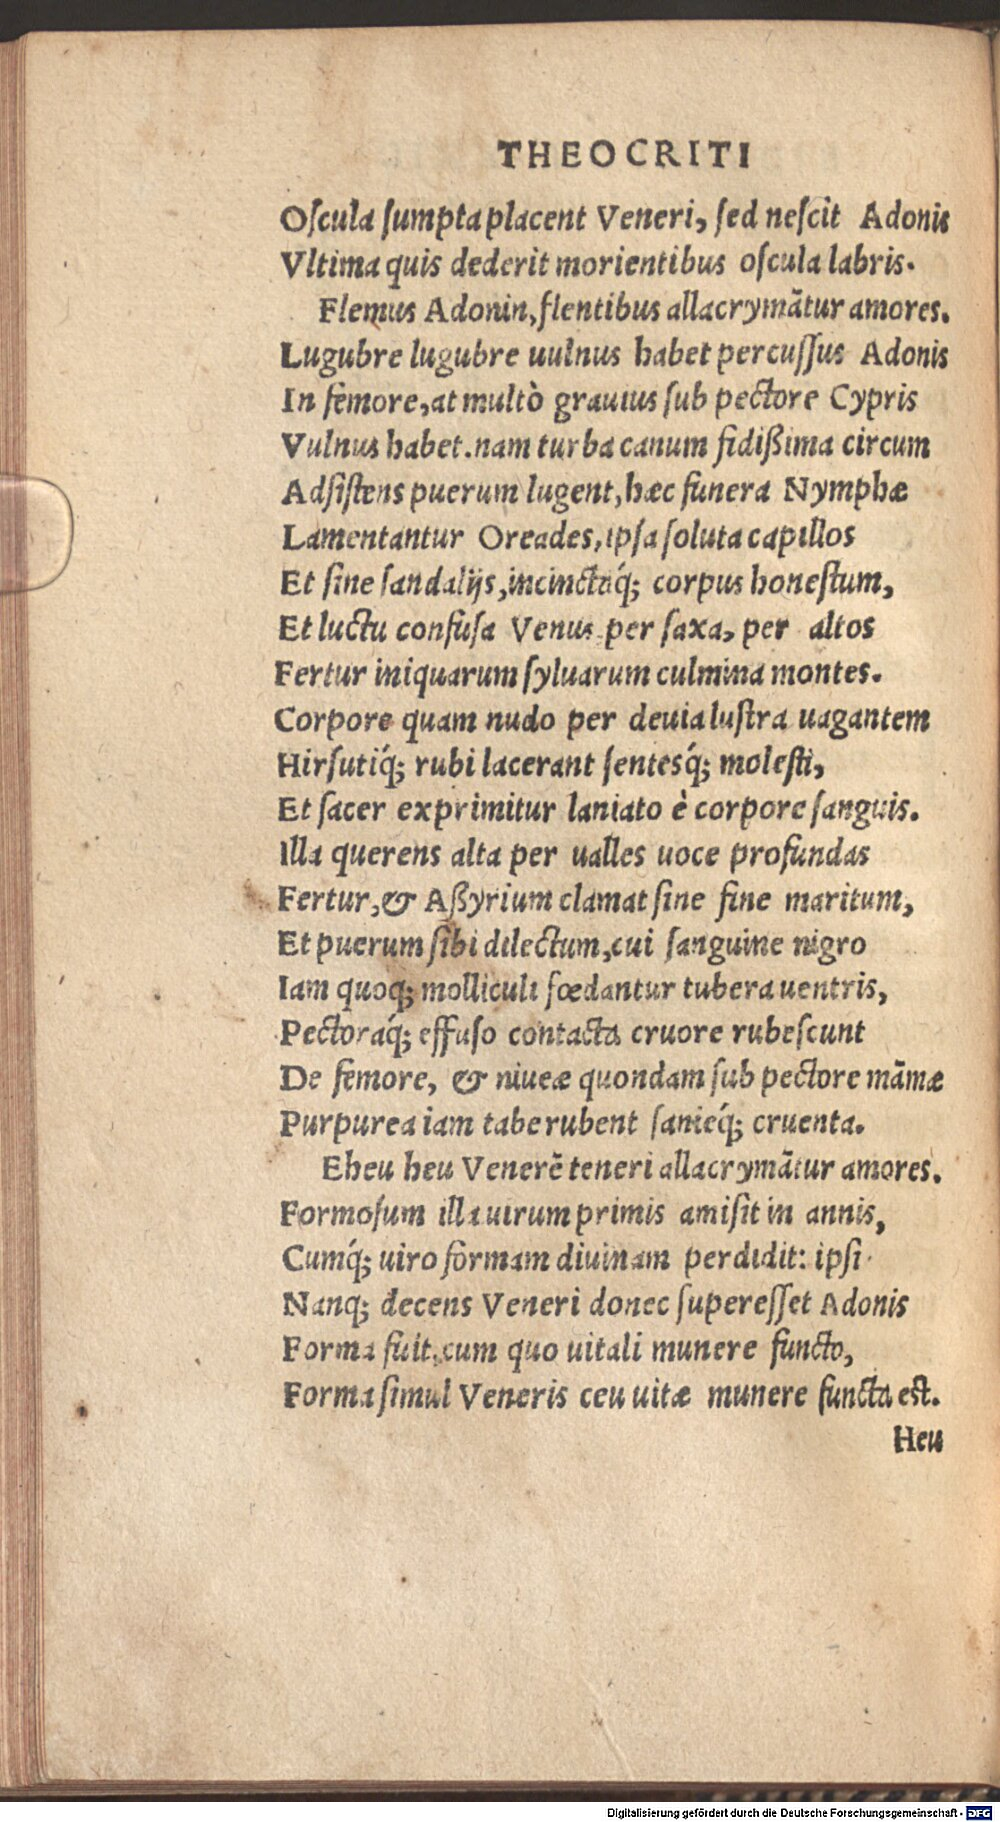 THEOCRITI
Oſcula ſumpta placent Veneri, ſed neſcit Adonis
Vltima quis dederit morientibus oſcula labris.
Flemus Adonin, flentibus allacrymãtur amores.
Lugubre lugubre uulnus habet percuſſus Adonis
In femore, at multò grauius ſub pectore Cypris
Vulnus habet. nam turba canum fidißima circum
Adſiſtens puerum lugent, hæc funera Nymphæ
Lamentantur Oreades, ipſa ſoluta capillos
Et ſine ſandalijs, incinctaq́; corpus honeſtum,
Et luctu confuſa Venus per ſaxa, per altos
Fertur iniquarum ſyluarum culmina montes.
Corpore quam nudo per deuia luſtra uagantem
Hirſutiq́; rubi lacerant ſentesq́; moleſti,
Et ſacer exprimitur laniato è corpore ſanguis.
Illa querens alta per ualles uoce profundas
Fertur, & Aßyrium clamat ſine fine maritum,
Et puerum ſibi dilectum, cui ſanguine nigro
Iam quoq; molliculi fœdantur tubera uentris,
Pectoraq́; effuſo contacta cruore rubeſcunt
De femore, & niueæ quondam ſub pectore mãmæ
Purpurea iam tabe rubent ſanieq́; cruenta.
Eheu heu Venerẽ teneri allacrymãtur amores.
Formoſum illa uirum primis amiſit in annis,
Cumq́; uiro formam diuinam perdidit: ipſi
Nanq; decens Veneri donec ſupereſſet Adonis
Forma fuit, cum quo uitali munere functo,
Forma ſimul Veneris ceu uitæ munere functa est.
Heu
Digitalisierung gefördert durch die Deutsche Forschungsgemeinschaft - DFG